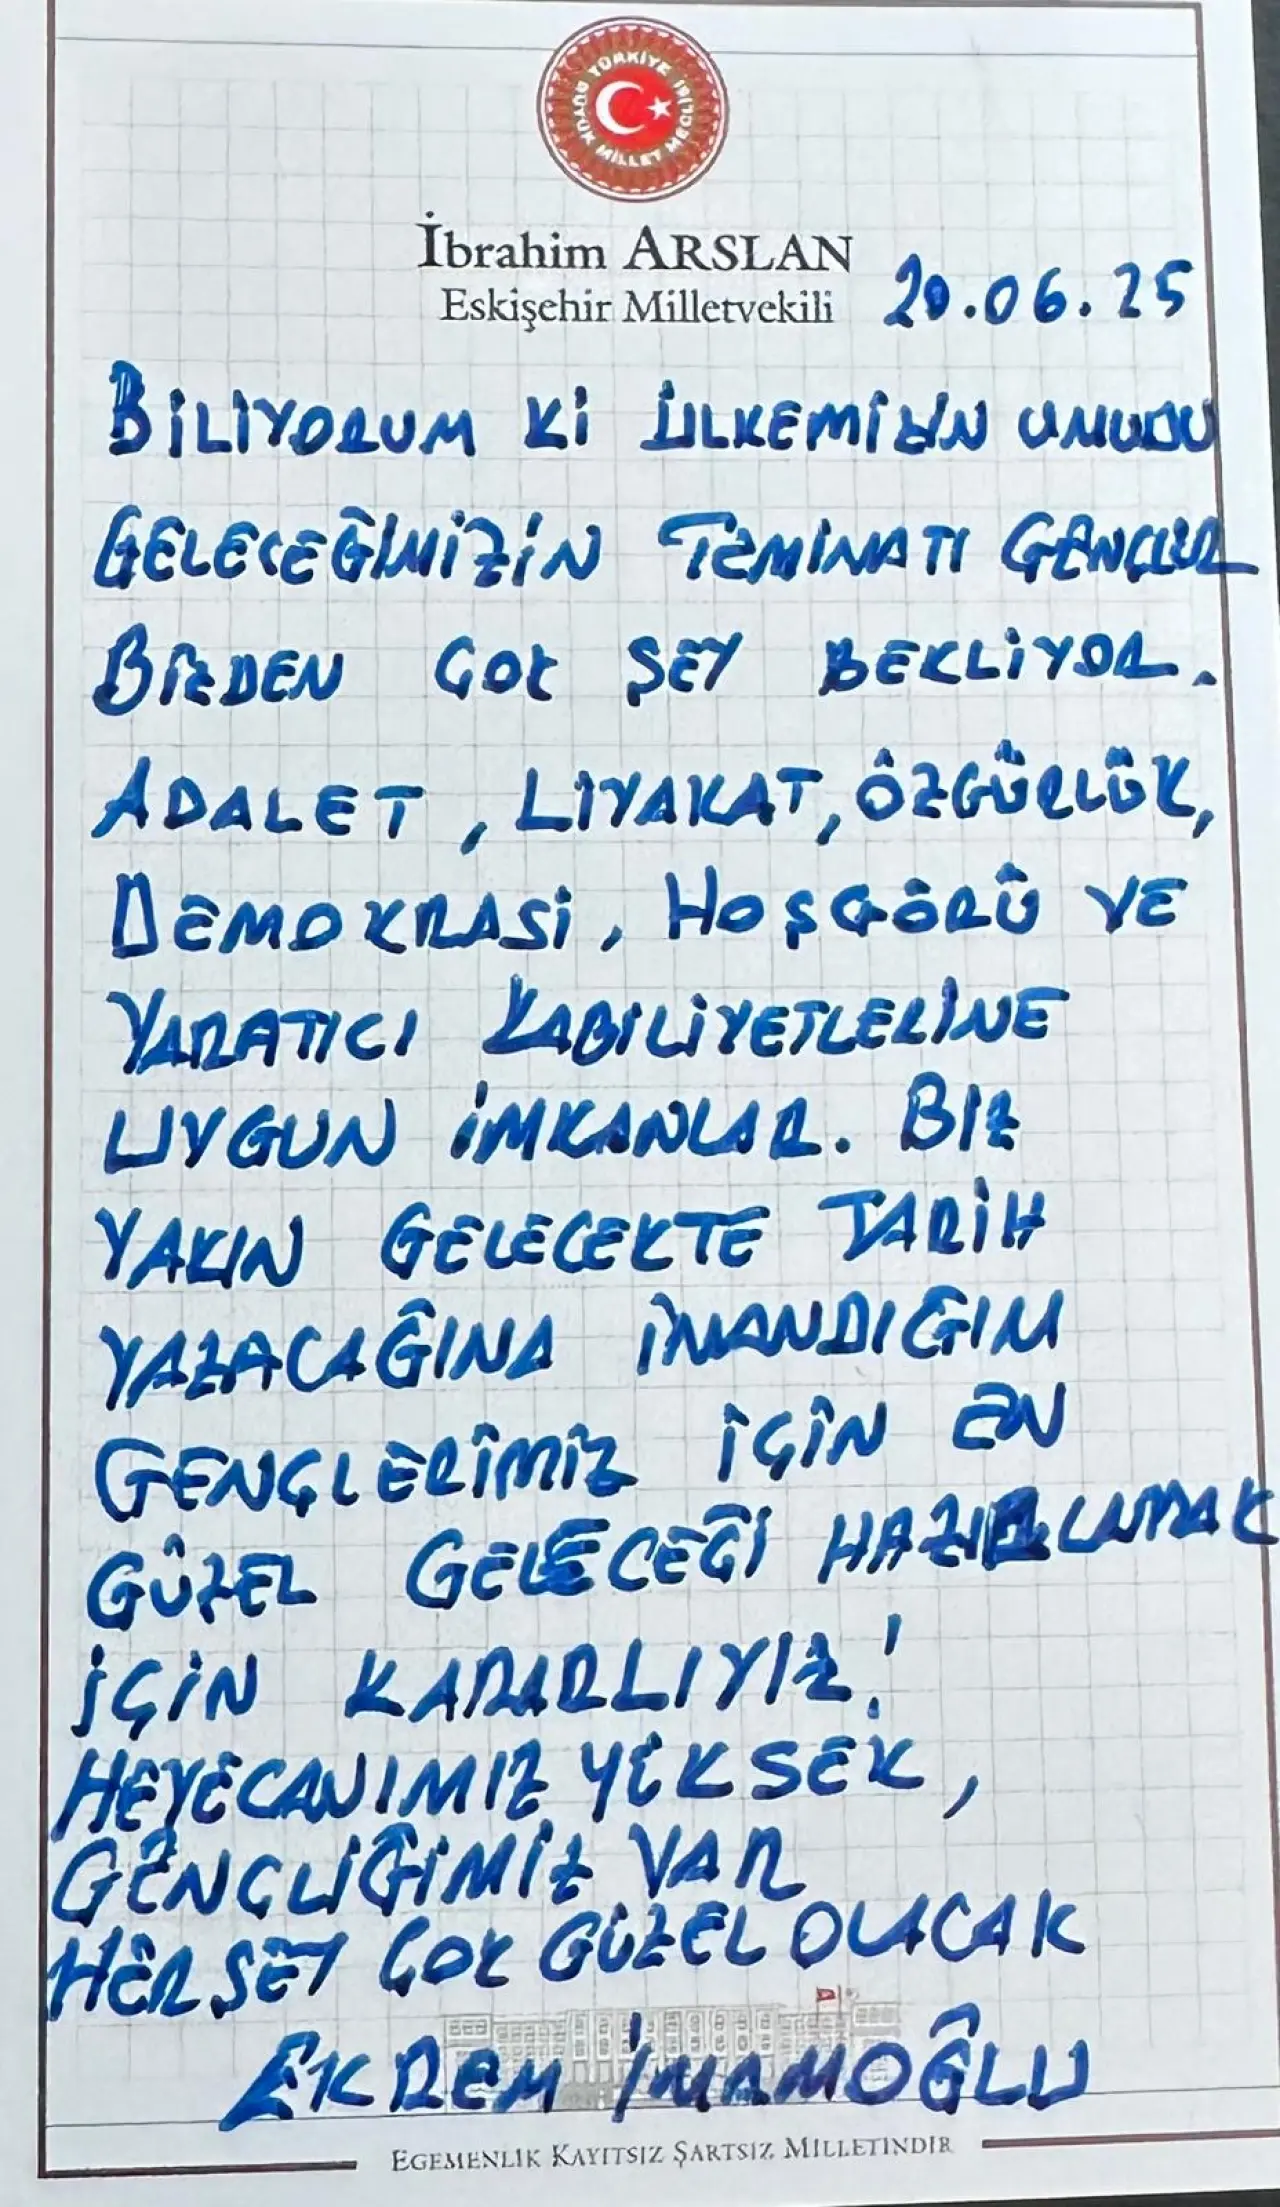 TÜRKİYE BÜYÜK MİLLET MECLİSİ
İbrahim ARSLAN
Eskişehir Milletvekili
20.06.25
BİLİYORUM Kİ ÜLKEMİZİN UMUDU
GELECEĞİMİZİN TEMİNATI GENÇLER
BİZDEN ÇOK ŞEY BEKLİYOR.
ADALET, LİYAKAT, ÖZGÜRLÜK,
DEMOKRASİ, HOŞGÖRÜ VE
YARATICI KABİLİYETLERİNE
UYGUN İMKANLAR. BİZ
YAKIN GELECEKTE TARİH
YAZACAĞINA İNANDIĞIM
GENÇLERİMİZ İÇİN EN
GÜZEL GELECEĞİ HAZIRLAMAK
İÇİN KARARLIYIZ!
HEYECANIMIZ YÜKSEK,
GENÇLİĞİMİZ VAR
HERŞEY ÇOK GÜZEL OLACAK
EKREM İMAMOĞLU
EGEMENLİK KAYITSIZ ŞARTSIZ MİLLETİNDİR